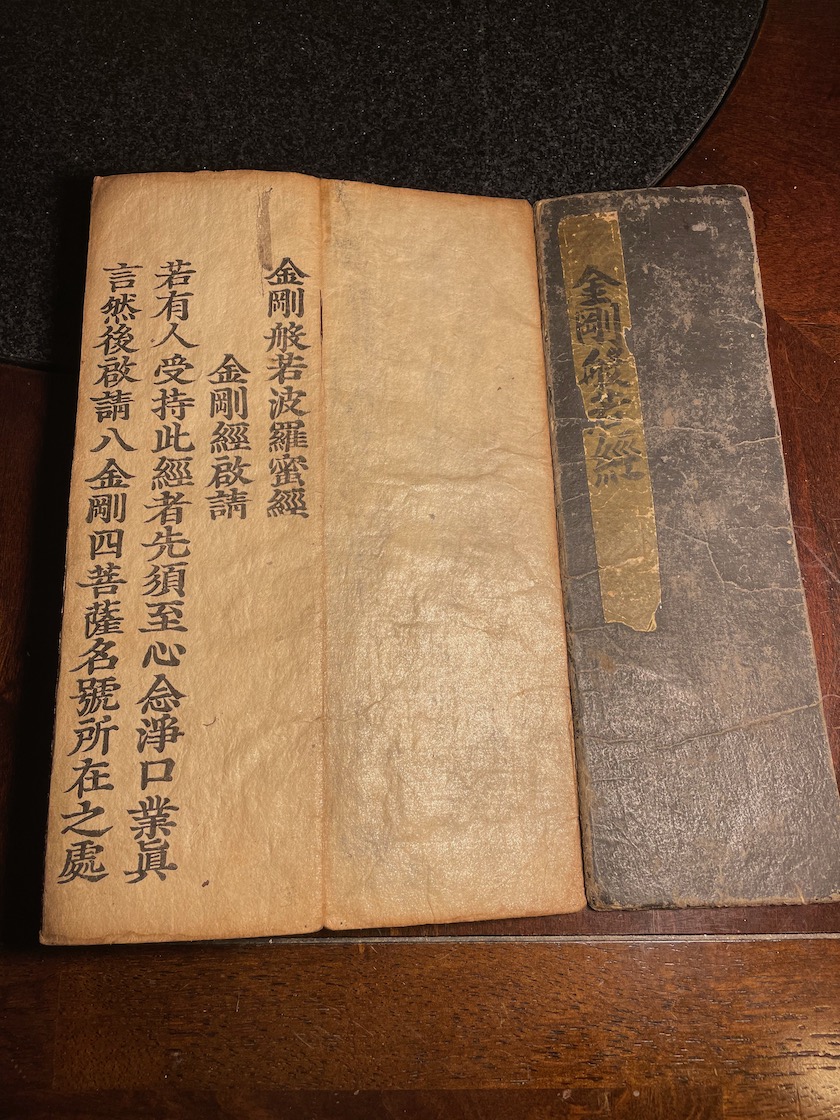 金剛般若經
金剛般若波羅蜜經
金剛經啟請
若有人受持此經者先須至心念淨口業眞
言然後啟請八金剛四菩薩名號所在之處